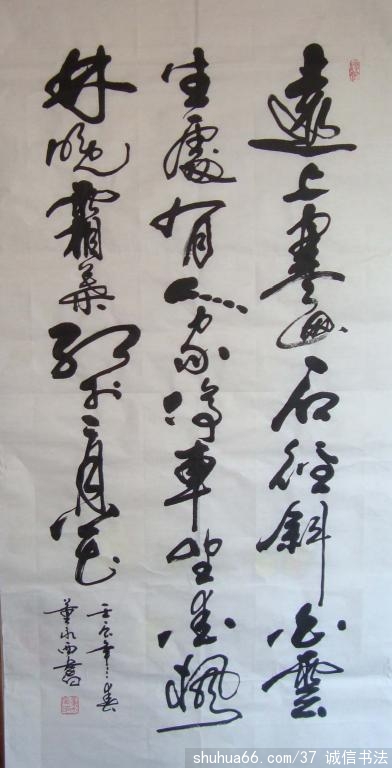 遠上寒山石徑斜白雲
生處有人家停車坐愛楓
林晚霜葉紅於二月花
壬辰年春
董西書
shuhua66.com/37 诚信书法